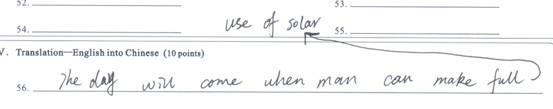 52.
53.
use of solar
54.
55.
V. Translation—English into Chinese (10 points)
56. The day will come when man can make full